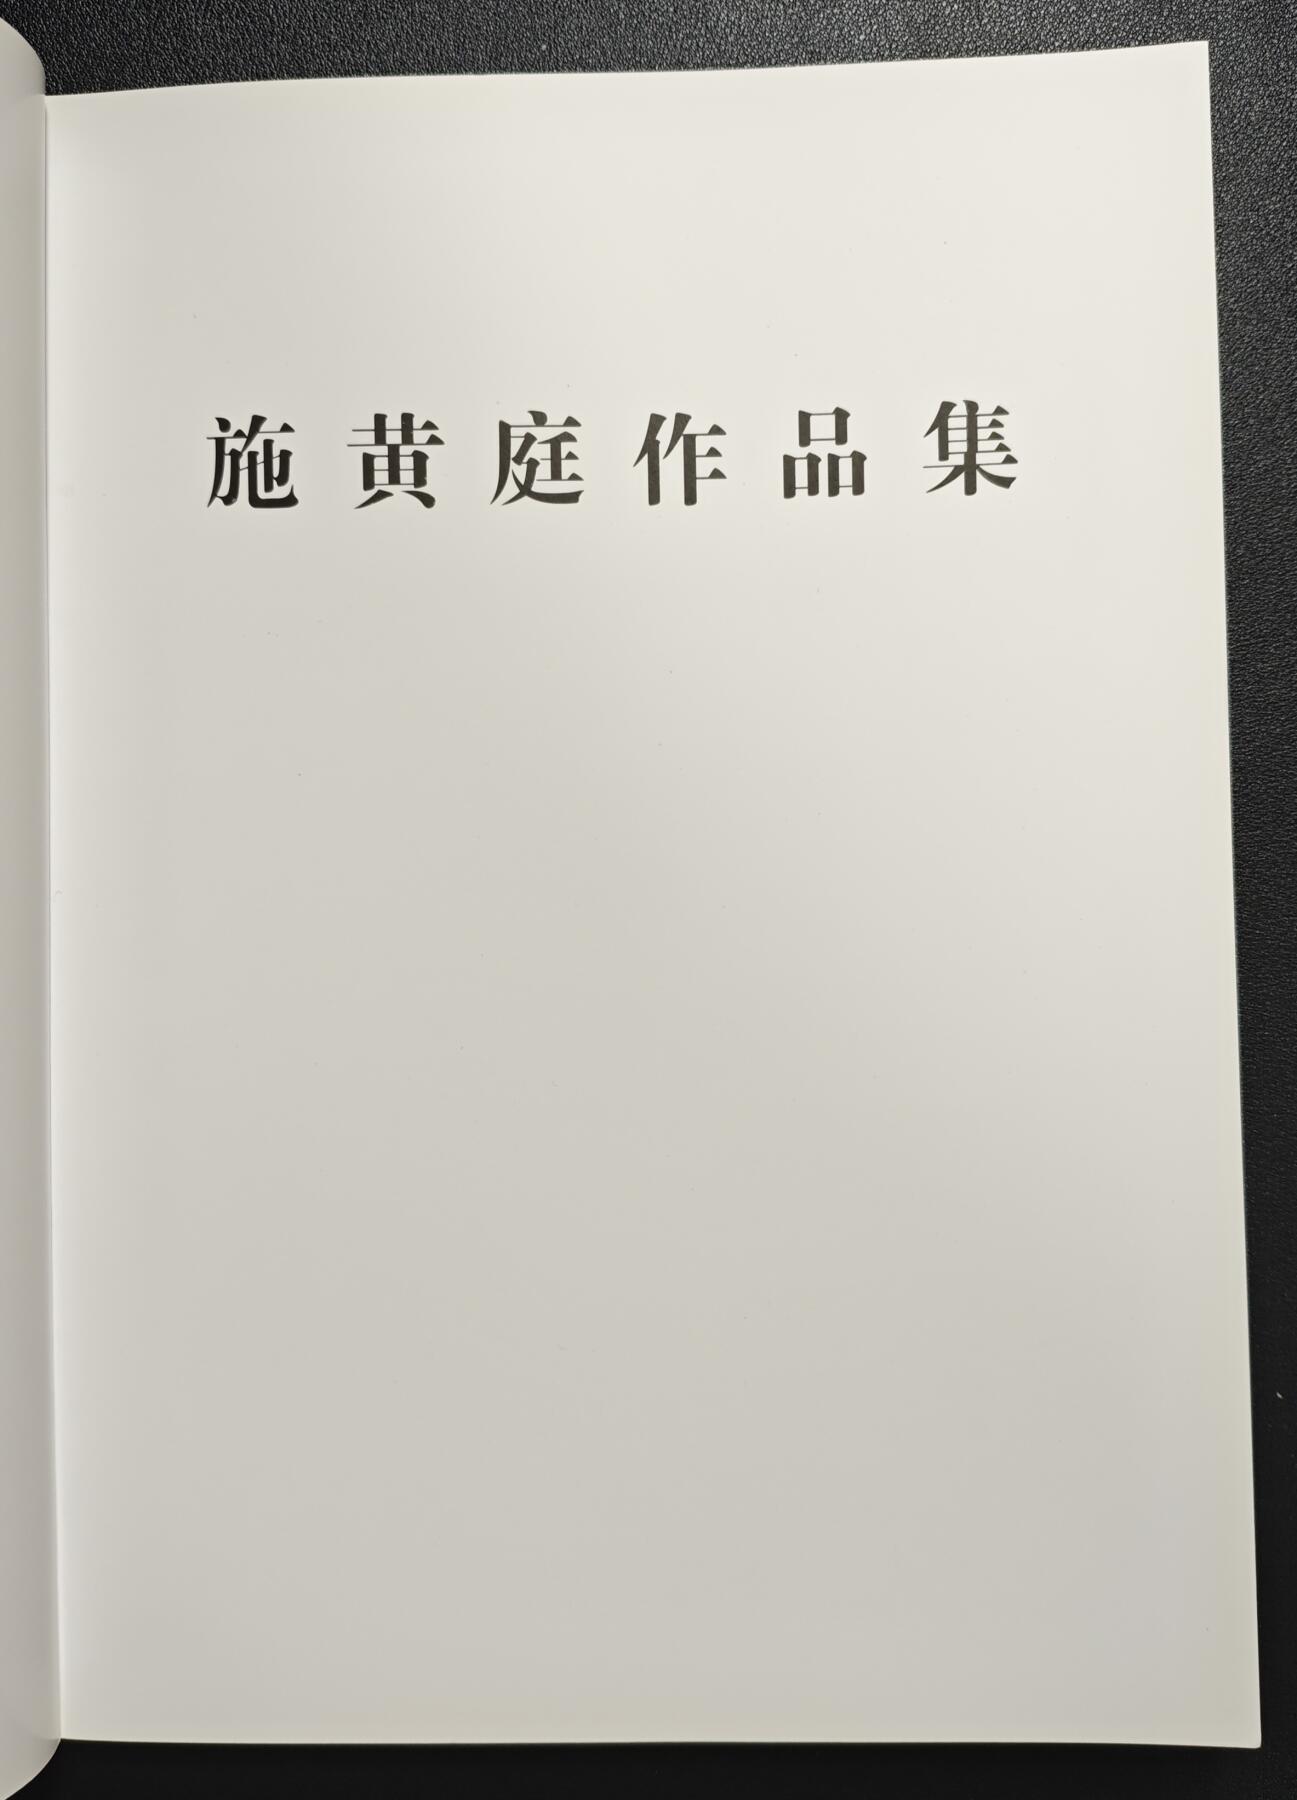 施黄庭作品集